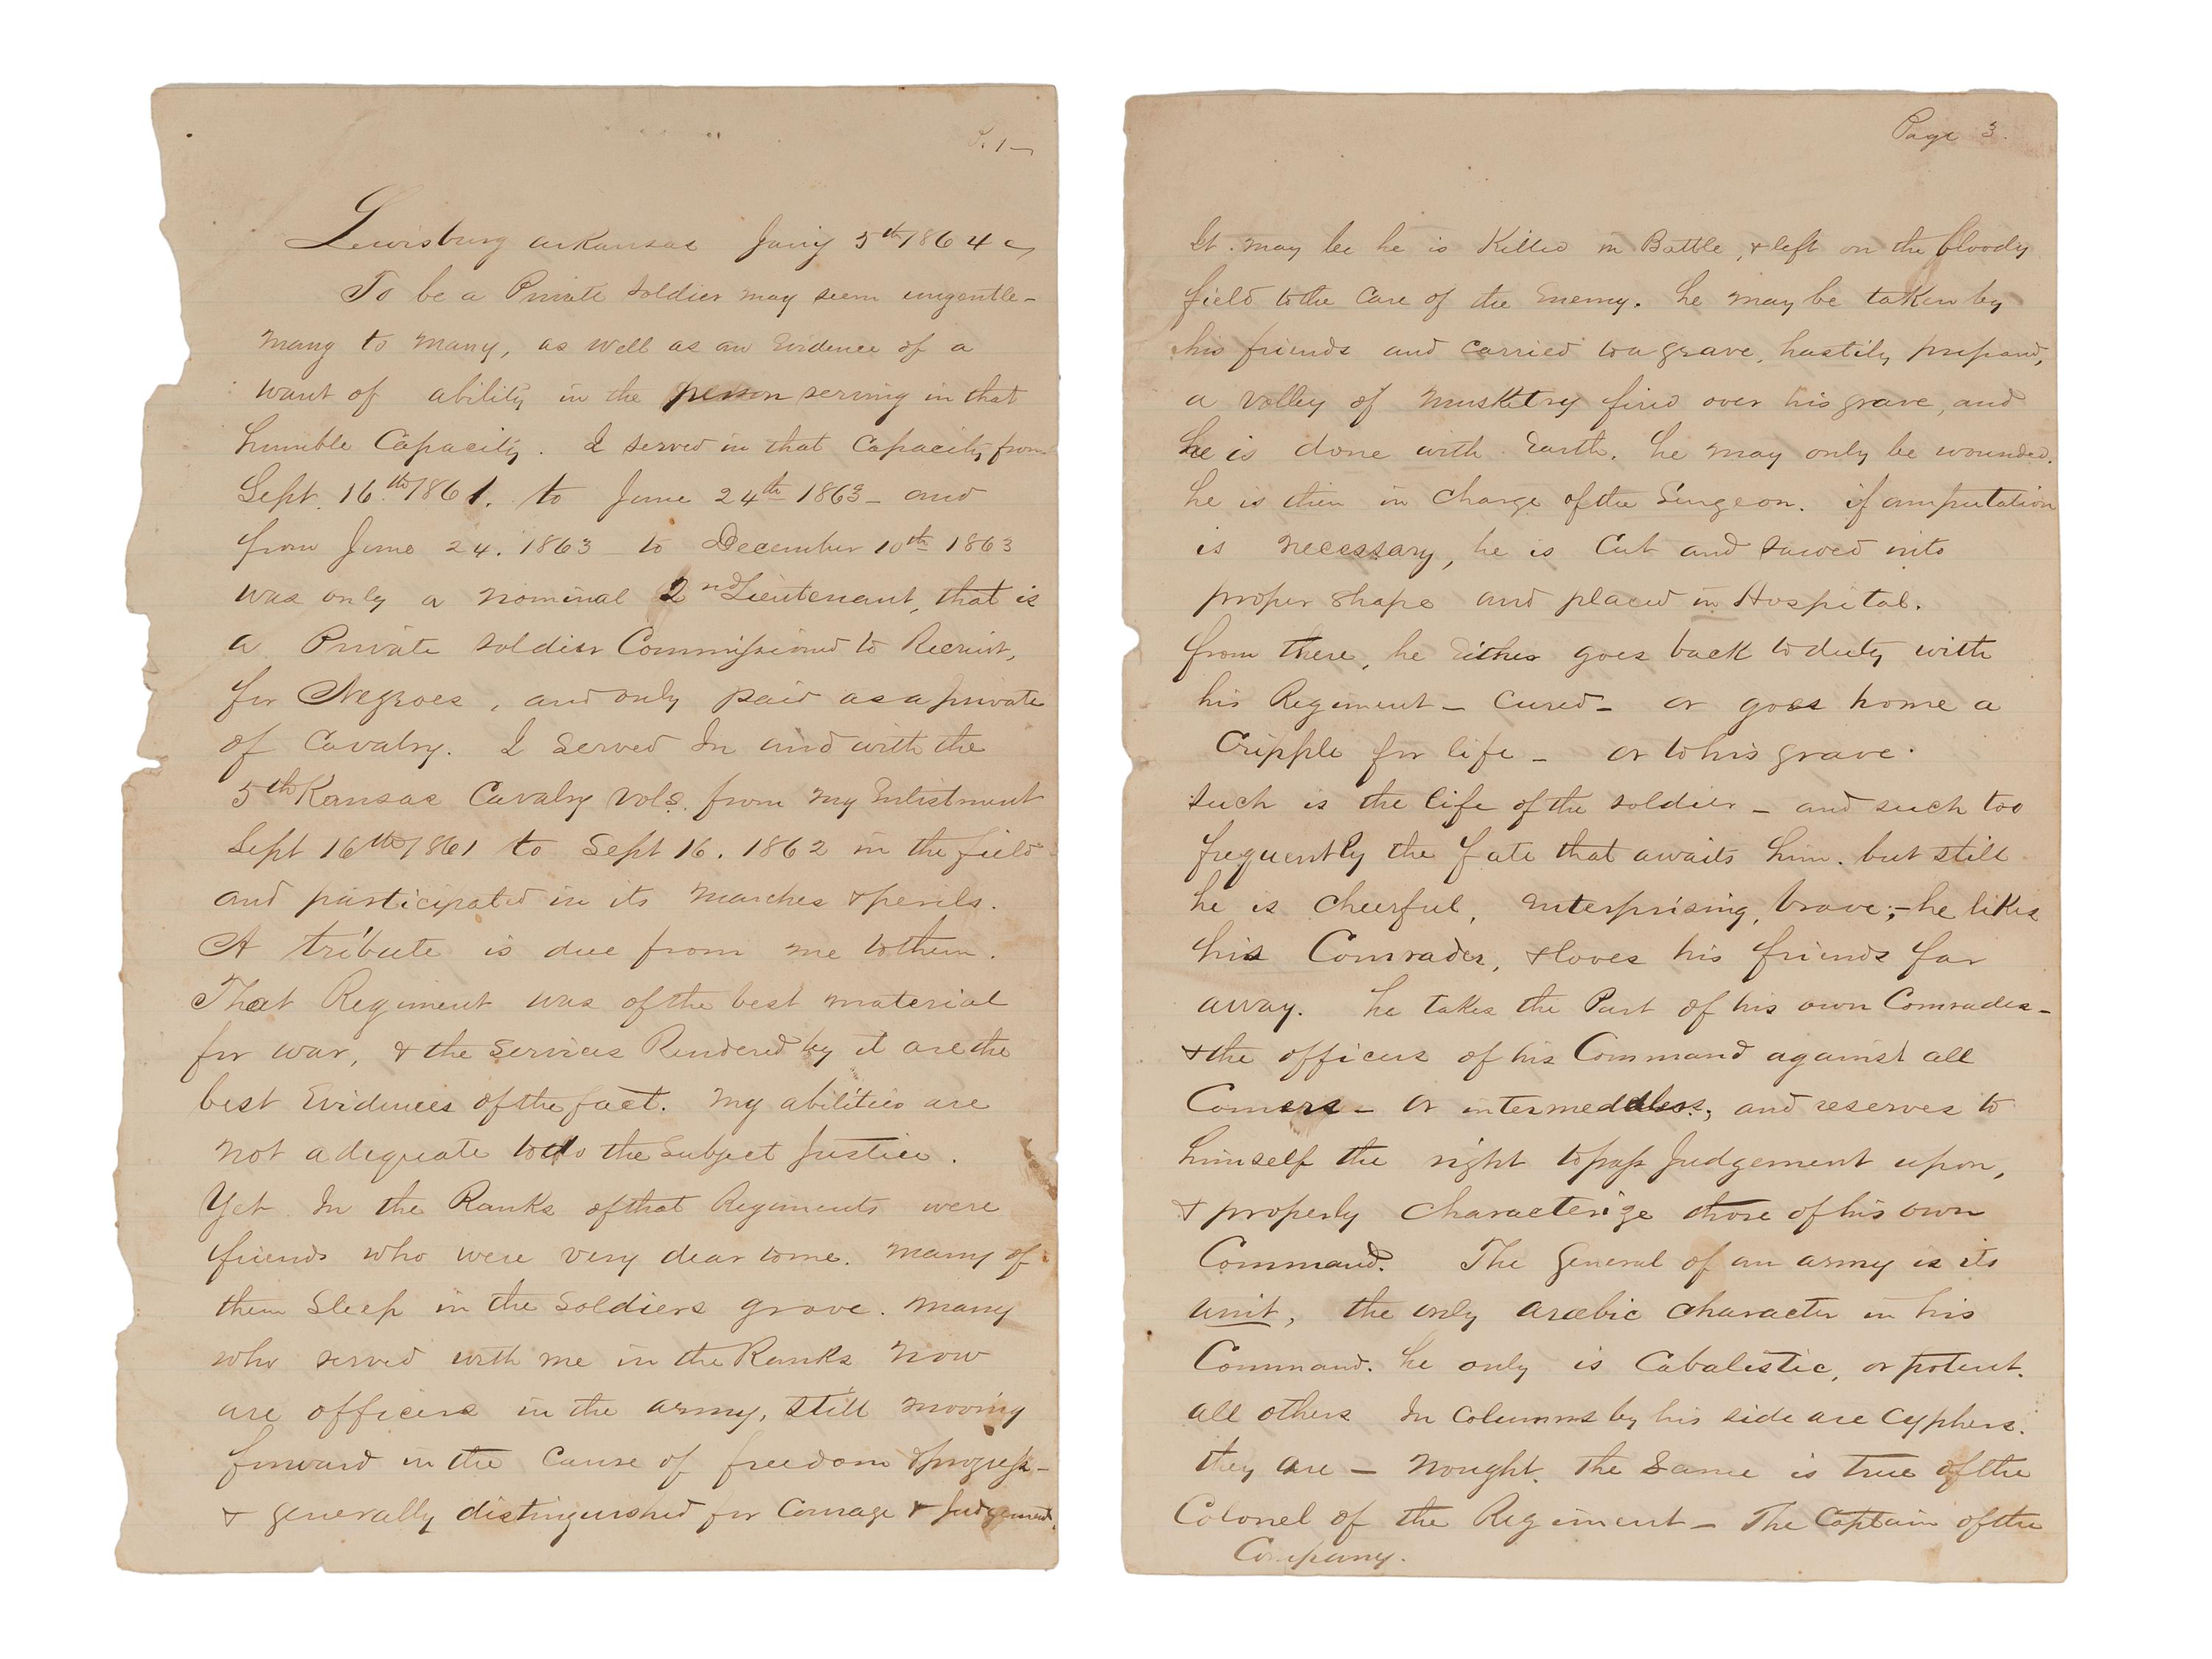 P. 1
Lewisburg arkansas Jany 5th 1864
To be a Private soldier may seem ungentle-
many to many, as well as an Evidence of a
want of ability in the person serving in that
humble Capacity. I served in that Capacity from
Sept. 16th 1861. to June 24th 1863 - and
from June 24. 1863 to December 10th 1863
was only a nominal 2nd Lieutenant, that is
a Private soldier Commissioned to Recruit,
for Negroes, and only paid as a private
of Cavalry. I Served In and with the
5th Kansas Cavalry Vols. from my Enlistment
Sept 16th 1861 to Sept 16. 1862 in the field
and participated in its marches & perils.
A tribute is due from me to them.
That Regiment was of the best material
for war, & the Services Rendered by it are the
best Evidences of the fact. my abilities are
not adequate to do the Subject Justice.
Yet In the Ranks of that Regiments were
friends who were very dear to me. many of
them Sleep in the Soldiers grave. many
who served with me in the Ranks now
are officers in the army, still moving
forward in the Cause of freedom & progress -
& generally distinguished for Courage & Judgement.
Page 3.
It may be he is Killed in Battle, & left on the bloody
field to the Care of the Enemy. he may be taken by
his friends and carried to a grave, hastily prepared,
a volley of musketry fired over his grave, and
he is done with Earth. he may only be wounded.
he is then in Charge of the Surgeon. if amputation
is necessary, he is Cut and sawed into
proper shape and placed in Hospital.
from there, he Either goes back to duty with
his Regiment - Cured - or goes home a
Cripple for life - or to his grave.
such is the life of the soldier - and such too
frequently the fate that awaits him. but still
he is cheerful, Enterprising, brave; - he likes
his Comrades, & loves his friends far
away. he takes the Part of his own Comrades -
& the officers of his Command against all
Comers - or intermeddlers, and reserves to
himself the right to pass Judgement upon,
& properly Characterize those of his own
Command. The General of an army is its
unit, the only arabic character in his
Command. he only is Cabalistic, or potent.
all others In Columns by his side are Cyphers.
they are - Nought. The Same is true of the
Colonel of the Regiment - The Captain of the
Company.